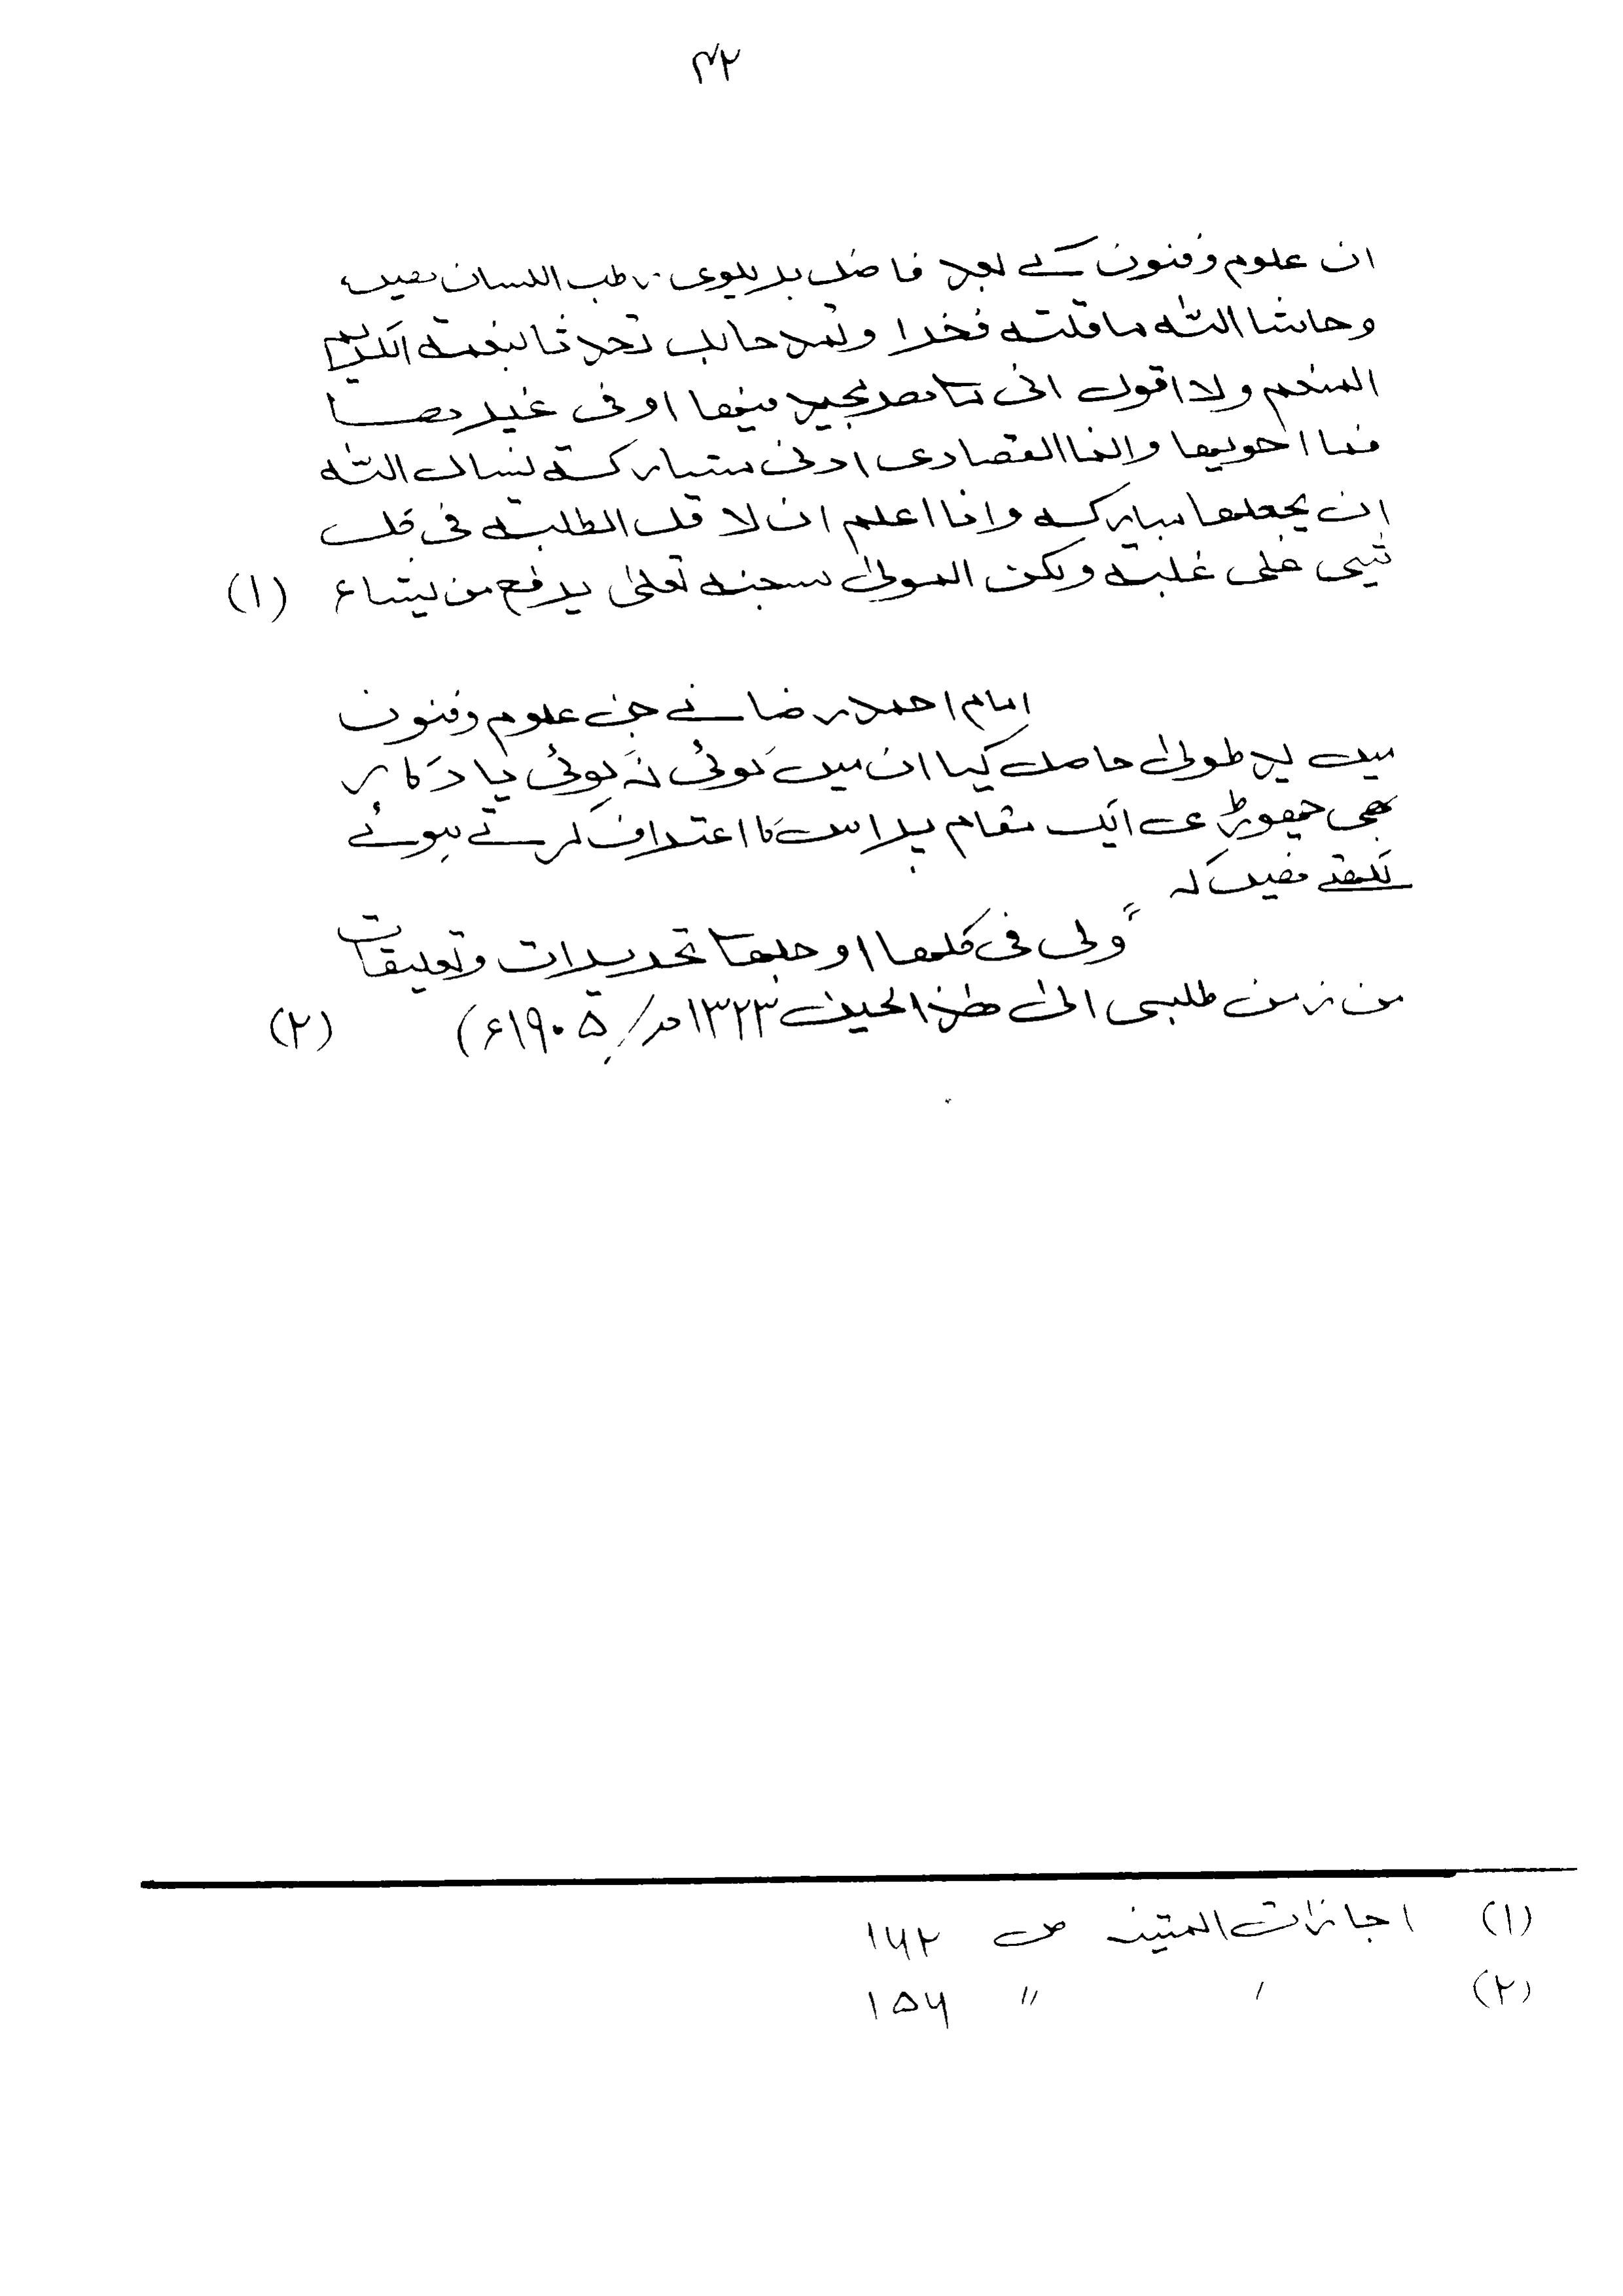 ۴۲
ان علوم و فنون کے بعد فاضل بریلوی رطب اللسان ھیں
وحاشا اللہ ما قلتہ فخرا وتمدحا بل تحدثا بنعمۃ الکریم
المنعم ولا اقول انی ماھر بجید فیھا او فی غیرھا
انما القصاری ادنی مشارکۃ نسال اللہ
ان یجعلھا مبارکہ وانا اعلم ان لا قل الطلبۃ فی قل
شیی علی غلبۃ ولکن المولیٰ سبحنہ تعلیٰ یرفع من یشاء (۱)
امام احمد رضا نے جن علوم و فنون
میں ید طولیٰ حاصل کیا ان میں کوئی نہ کوئی یادگار
بھی چھوڑی ایک مقام پر اس کا اعتراف کرتے ہوئے
لکھتے ھیں کہ
"ولی فی کلھا او جلھا تحریرات و تعلیقات
من زمن طلبی الیٰ ھذا الحین ۱۳۲۳ھ/ ۱۹۰۵ء) (۲)
(۱) اجازات المتینہ ص ۱۶۲
(۲) ٬ ٬٬ ۱۵۶